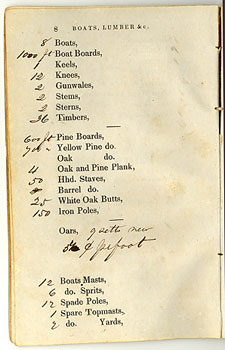 8 BOATS, LUMBER &c.
8 Boats,
1000 ft Boat Boards,
1 Keels,
12 Knees,
2 Gunwales,
2 Stems,
2 Sterns,
36 Timbers,
600 ft Pine Boards,
Yellow Pine do.
Oak do.
4 Oak and Pine Plank,
50 Hhd. Staves,
Barrel do.
25 White Oak Butts,
150 Iron Poles,
Oars, 9 setts new
foot
12 Boats Masts,
6 do. Sprits,
12 Spade Poles,
1 Spare Topmasts,
2 do. Yards,